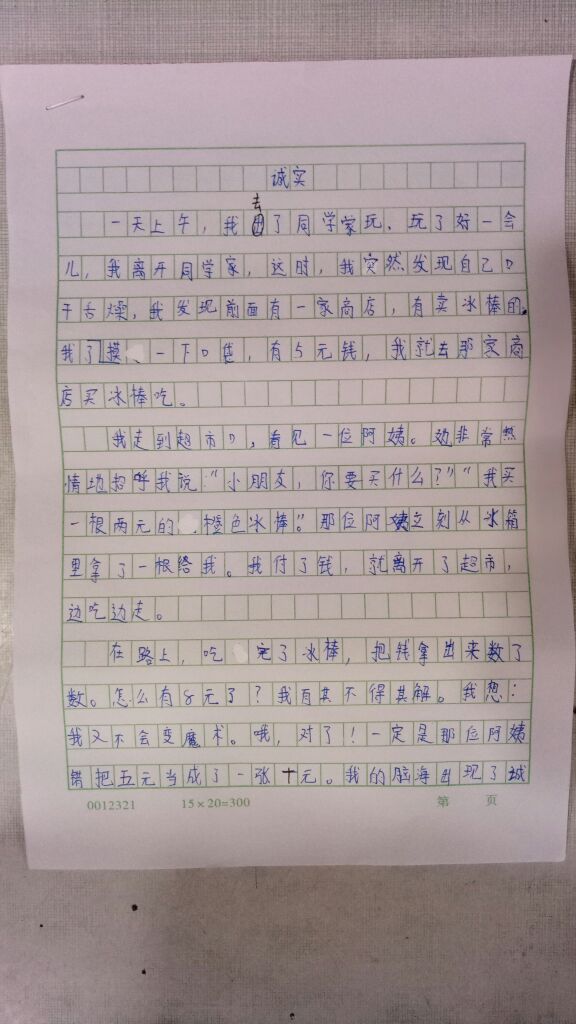 诚实
去
一天上午，我了同学家玩、玩了好一会
儿，我离开同学家，这时，我突然发现自己口
干舌燥，我发现前面有一家商店，有卖冰棒的。
我了摸一下口袋，有5元钱，我就去那家商
店买冰棒吃。
我走到超市口，看见一位阿姨。她非常热
情地招呼我说："小朋友，你要买什么？""我买
一根两元的橙色冰棒。"那位阿姨立刻从冰箱
里拿了一根给我。我付了钱，就离开了超市，
边吃边走。
在路上，吃完了冰棒，把钱拿出来数了
数。怎么有8元了？我百其不得其解。我想：
我又不会变魔术。哦，对了！一定是那位阿姨
错把五元当成了一张十元。我的脑海出现了诚
0012321 15×20=300 第 页